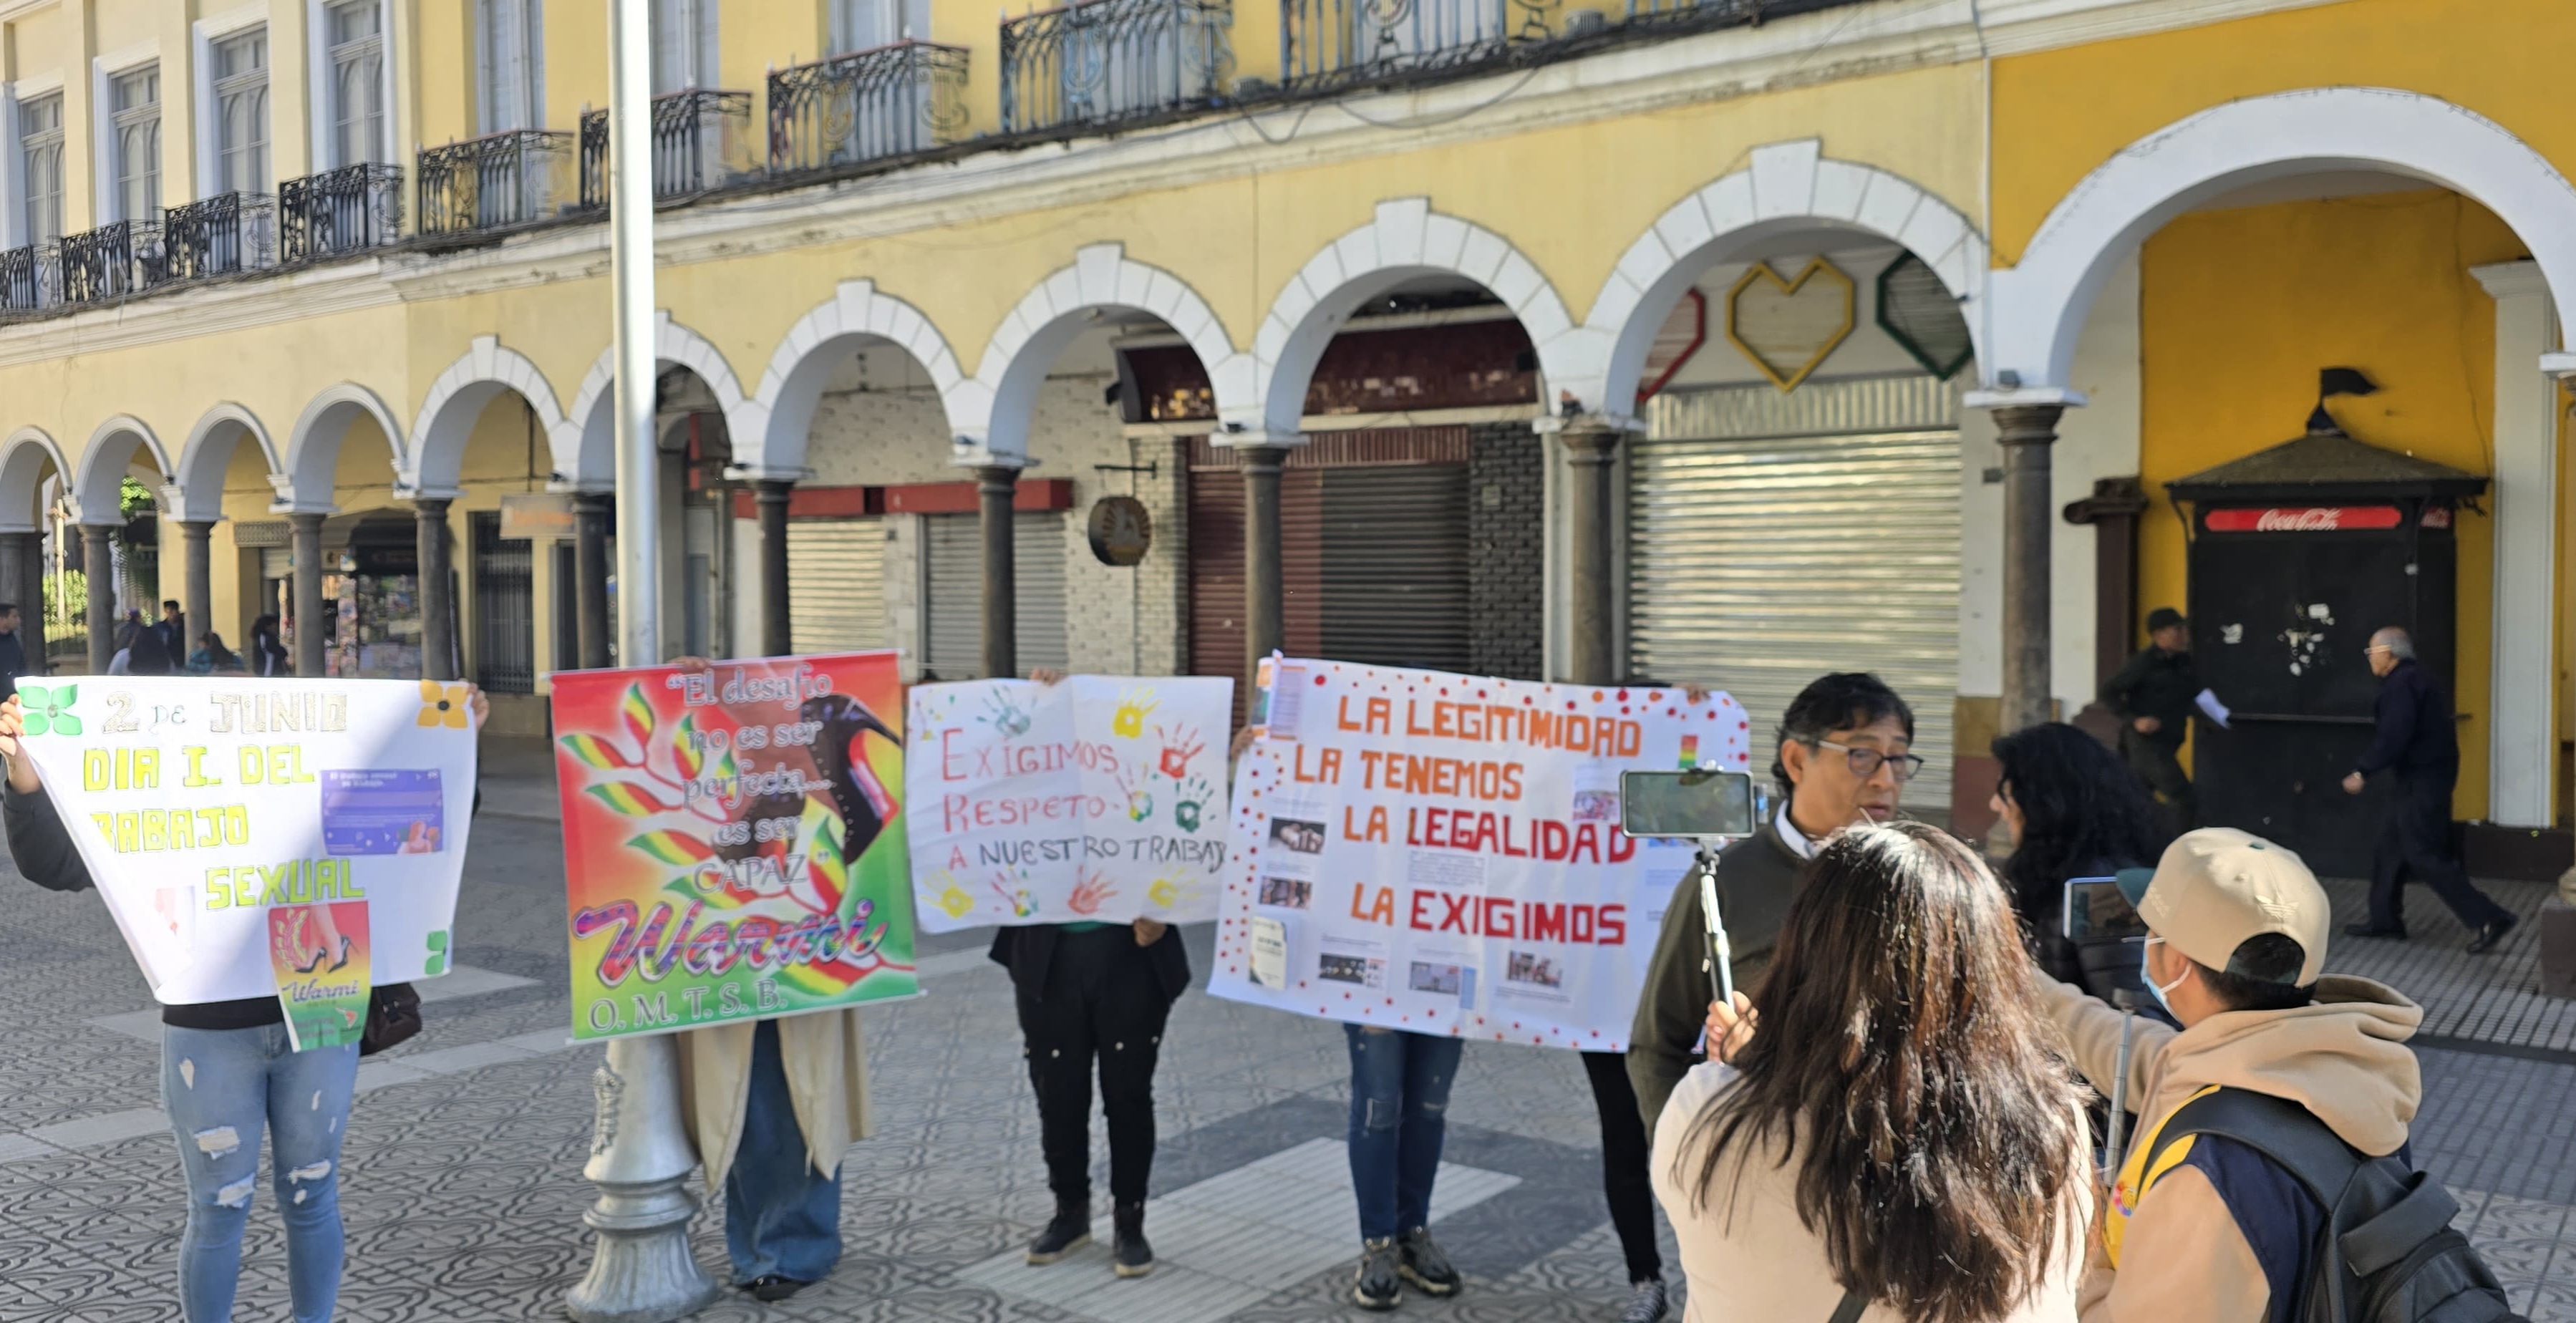 2 DE JUNIO
DIA I. DEL
TRABAJO
SEXUAL
Warmi
"El desafio
no es ser
perfecta...
es ser
CAPAZ"
Warmi
O.M.T.S.B.
EXIGIMOS
RESPETO
A NUESTRO TRABAJ
LA LEGITIMIDAD
LA TENEMOS
LA LEGALIDAD
LA EXIGIMOS
Coca-Cola